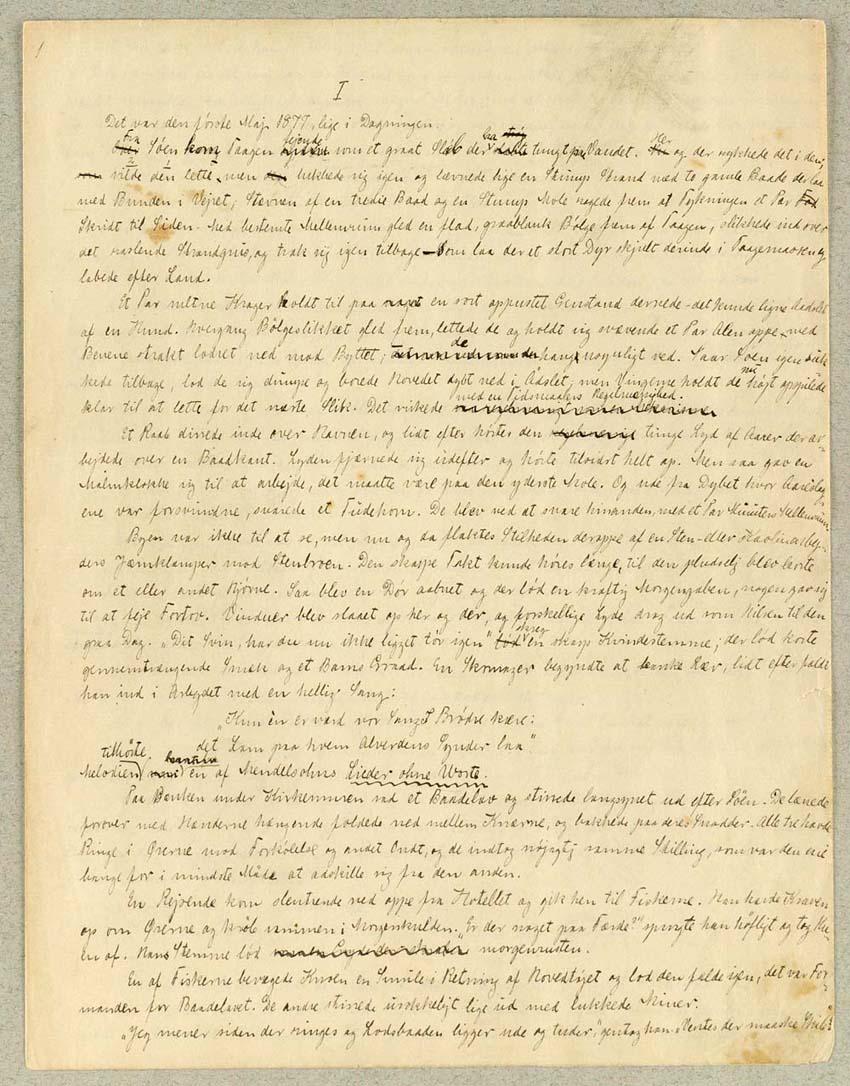 1
I
Det var den første Maj 1877, lige i Dagningen.
Fra Søen kom Taagen fejende som et graat Slæb der laa tungt paa Vandet. Her og der rykkede det i den;
vilde den lette, men lukkede sig igen og levnede lige en Stump Strand med to gamle Baade der laa
med Bunden i Vejret; Stævnen af en tredie Baad og en Stump Mole ragede frem af Tykningen et Par
Skridt til Siden. Med bestemte Mellemrum gled en flad, graablank Bølge frem af Taagen, slikkede ind over
det raslende Strandgrus, og trak sig igen tilbage – som laa der et stort Dyr skjult derinde i Taagemassen og
labede efter Land.
Et Par sultne Krager holdt til paa noget en sort oppustet Genstand dernede – det kunde ligne Aadslet
af en Hund. Hvergang Bølgeslikket gled frem, lettede de og holdt sig svævende et Par Alen oppe med
Benene strakt lodret ned mod Byttet; de hang nysgeligt ved. Naar Søen igen suk-
kede tilbage, lod de sig dumpe og borede Hovedet dybt ned i Adslet, men Vingerne holdt de nu højt oppilede
klar til at lette for det næste Slik. Det virkede med en Tidsmaalers Regelmæssighed.
Et Raab dirrede inde over Havnen, og lidt efter hørtes den tunge Lyd af Aarer der ar-
bejdede over en Baadkant. Lyden fjærnede sig udefter og hørte tilsidst helt op. Men saa gav en
Malmklokke sig til at arbejde, det maatte være paa den yderste Mole. Og ude fra Dybet hvor Aareslag
ene var forsvundne, svarede et Tudehorn. De blev ved at svare hinanden, med et Par Minutters Mellemrum.
Byen var ikke til at se, men nu og da flaktes Stilheden deroppe af en Sten- eller Kaolinarbej-
ders Jærnklamper mod Stenbroen. Den skarpe Takt kunde høres længe, til den pludselig blev borte
om et eller andet Hjørne. Saa blev en Dør aabnet og der lød en kraftig Morgengaben, nogen gav sig
til at feje Fortov. Vinduer blev slaaet op her og der, og forskellige Lyde drog ud som Hilsen til den
graa Dag. „Dit Svin, har du nu ikke ligget tør igen“ skreg en skarp Kvindestemme; der lød korte
gennemtrængende Smæk og et Barns Graad. En Skomager begyndte at banke Lær, lidt efter faldt
han ind i Arbejdet med en hellig Sang:
„Kun én er værd vor Sang, I Brødre kære:
det Lam paa hvem Alverdens Synder laa“
Melodien tilhørte en af Mendelsohns Lieder ohne Worte.
Paa Bænken under Kirkemuren sad et Baadelav og stirrede langsynet ud efter Søen. De lænede
forover med Hænderne hængende foldede ned mellem Knæerne, og bakkede paa deres Snadder. Alle tre havde
Ringe i Ørerne mod Forkølelse og andet Ondt, og de indtog nøjagtig samme Stilling, som var den ene
bange for i mindste Maade at adskille sig fra den anden.
En Rejsende kom slentrende ned oppe fra Hotellet og gik hen til Fiskerne. Han havde Kraven
op om Ørerne og krøb sammen i Morgenkulden. „Er der noget paa Færde?“ spurgte han høfligt og tog Hu-
en af. Hans Stemme lød morgenrusten.
En af Fiskerne bevægede Huen en Smule i Retning af Hovedtøjet og lod den falde igen, det var For-
manden for Baadelavet. De andre stirrede urokkeligt lige ud med lukkede Miner.
„Jeg mener siden der ringes og Lodsbaaden ligger ude og tuder,“ gentog han. „Ventes der maaske Skib?“